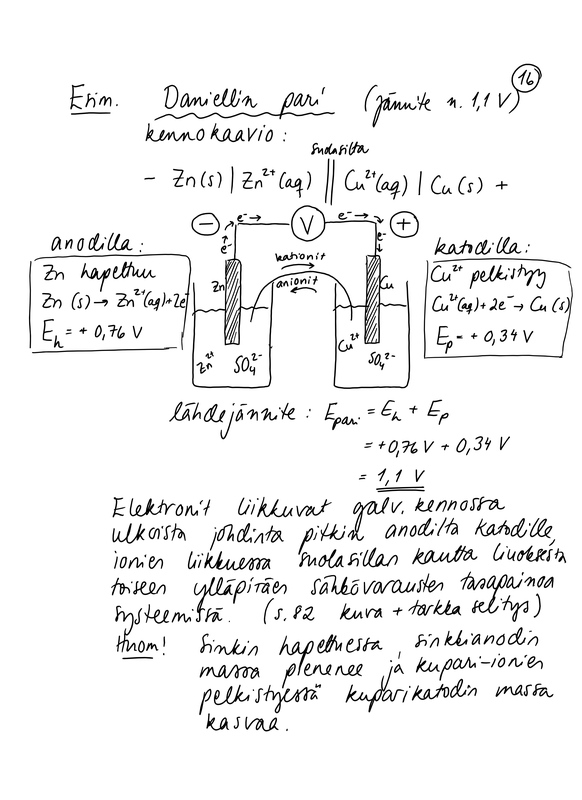 16
Esim. Daniellin pari (jännite n. 1,1 V)
kennokaavio:
suolasilta
- Zn(s) | Zn²⁺(aq) || Cu²⁺(aq) | Cu(s) +
− e⁻ → V e⁻ → +
e⁻ e⁻
anodilla:
Zn hapettuu
Zn (s) → Zn²⁺(aq)+2e⁻
Eh = + 0,76 V
kationit
anionit
Zn Cu
Zn²⁺ SO₄²⁻ Cu²⁺ SO₄²⁻
katodilla:
Cu²⁺ pelkistyy
Cu²⁺(aq)+2e⁻ → Cu (s)
Ep = + 0,34 V
lähdejännite : Epari = Eh + Ep
= +0,76 V + 0,34 V
= 1,1 V
Elektronit liikkuvat galv. kennossa
ulkoista johdinta pitkin anodilta katodille,
ionien liikkuessa suolasillan kautta liuoksesta
toiseen ylläpitäen sähkövarausten tasapainoa
systeemissä. (s. 82 kuva + tarkka selitys)
Huom! Sinkin hapettuessa, sinkkianodin
massa pienenee ja kupari-ionien
pelkistyessä kuparikatodin massa
kasvaa.